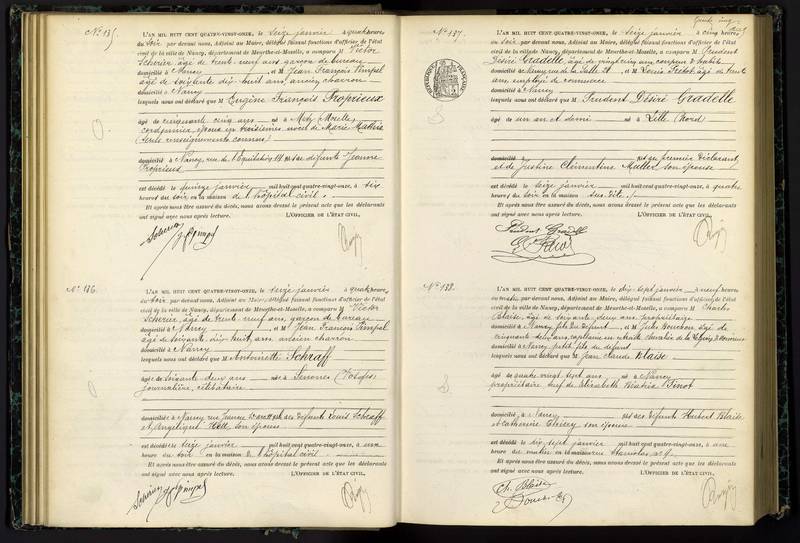 N° 135
L'AN MIL HUIT CENT QUATRE-VINGT-ONZE, le seize janvier à quatre heures
du soir par devant nous, Adjoint au Maire, délégué faisant fonctions d'officier de l'état
civil de la ville de Nancy, département de Meurthe-et-Moselle, a comparu M Victor
Scherier âgé de trente-neuf ans, garçon de bureau
domicilié à Nancy, et M Jean François Pimpel
âgé de soixante dix huit ans, ancien charron
domicilié à Nancy
lesquels nous ont déclaré que M Eugène François Proprieux
âgé de cinquante cinq ans né à Metz (Moselle)
cordonnier, époux en troisièmes noces de Marie Mathis
(seuls renseignements connus)
domicilié à Nancy, rue de l'Equitation, 19 et ses défunts Jeanne
Proprieux
est décédé le quinze janvier mil huit cent quatre-vingt-onze, à dix
heures du soir en la maison de l'hôpital civil
Et après nous être assuré du décès, nous avons dressé le présent acte que les déclarants
ont signé avec nous après lecture. L'OFFICIER DE L'ÉTAT CIVIL,
N° 136
L'AN MIL HUIT CENT QUATRE-VINGT-ONZE, le seize janvier à quatre heures
du soir par devant nous, Adjoint au Maire, délégué faisant fonctions d'officier de l'état
civil de la ville de Nancy, département de Meurthe-et-Moselle, a comparu M Victor
Scherier, âgé de trente neuf ans, garçon de bureau
domicilié à Nancy, et M Jean François Pimpel
âgé de soixante dix huit ans, ancien charron
domicilié à Nancy
lesquels nous ont déclaré que M Antoinette Schraff
âgée de soixante deux ans née à Senones (Vosges)
journalière, célibataire
domiciliée à Nancy rue Jeanne et ses défunts Louis Schraff
et Angélique Hell, son épouse
est décédée le seize janvier mil huit cent quatre-vingt-onze, à une
heure du soir en la maison de l'hôpital civil
Et après nous être assuré du décès, nous avons dressé le présent acte que les déclarants
ont signé avec nous après lecture. L'OFFICIER DE L'ÉTAT CIVIL,
N° 137
L'AN MIL HUIT CENT QUATRE-VINGT-ONZE, le seize janvier à cinq heures
du soir par devant nous, Adjoint au Maire, délégué faisant fonctions d'officier de l'état
civil de la ville de Nancy, département de Meurthe-et-Moselle, a comparu M Prudent
Désiré Gradelle, âgé de vingt cinq ans, coupeur d'habits
domicilié à Nancy rue de la Salle et M Louis âgé de trente
ans, employé de commerce
domicilié à Nancy
lesquels nous ont déclaré que M Prudent Désiré Gradelle
âgé de un an et demi né à Lille (Nord)
domicilié à est du premier déclarant
et de Justine Clémentine Muller son épouse
est décédé le seize janvier mil huit cent quatre-vingt-onze, à quatre
heures du soir en la maison
Et après nous être assuré du décès, nous avons dressé le présent acte que les déclarants
ont signé avec nous après lecture. L'OFFICIER DE L'ÉTAT CIVIL,
Prudent Gradelle
N° 138
L'AN MIL HUIT CENT QUATRE-VINGT-ONZE, le dix sept janvier à neuf heures
du matin par devant nous, Adjoint au Maire, délégué faisant fonctions d'officier de l'état
civil de la ville de Nancy, département de Meurthe-et-Moselle, a comparu M Charles
Blaise, âgé de soixante deux ans, propriétaire
domicilié à Nancy fils du défunt, et M Jules Bourbon, âgé de
cinquante deux ans, capitaine en retraite chevalier de la Légion d'Honneur
domicilié à Nancy petit fils du défunt
lesquels nous ont déclaré que M Jean Claude Blaise
âgé de quatre vingt sept ans né à Nancy
propriétaire veuf de Elisabeth Tinot
domicilié à Nancy est ses défunts Hubert Blaise
et Catherine son épouse
est décédé le dix sept janvier mil huit cent quatre-vingt-onze, à une
heure du matin en la maison rue Stanislas
Et après nous être assuré du décès, nous avons dressé le présent acte que les déclarants
ont signé avec nous après lecture. L'OFFICIER DE L'ÉTAT CIVIL,
Ch. Blaise